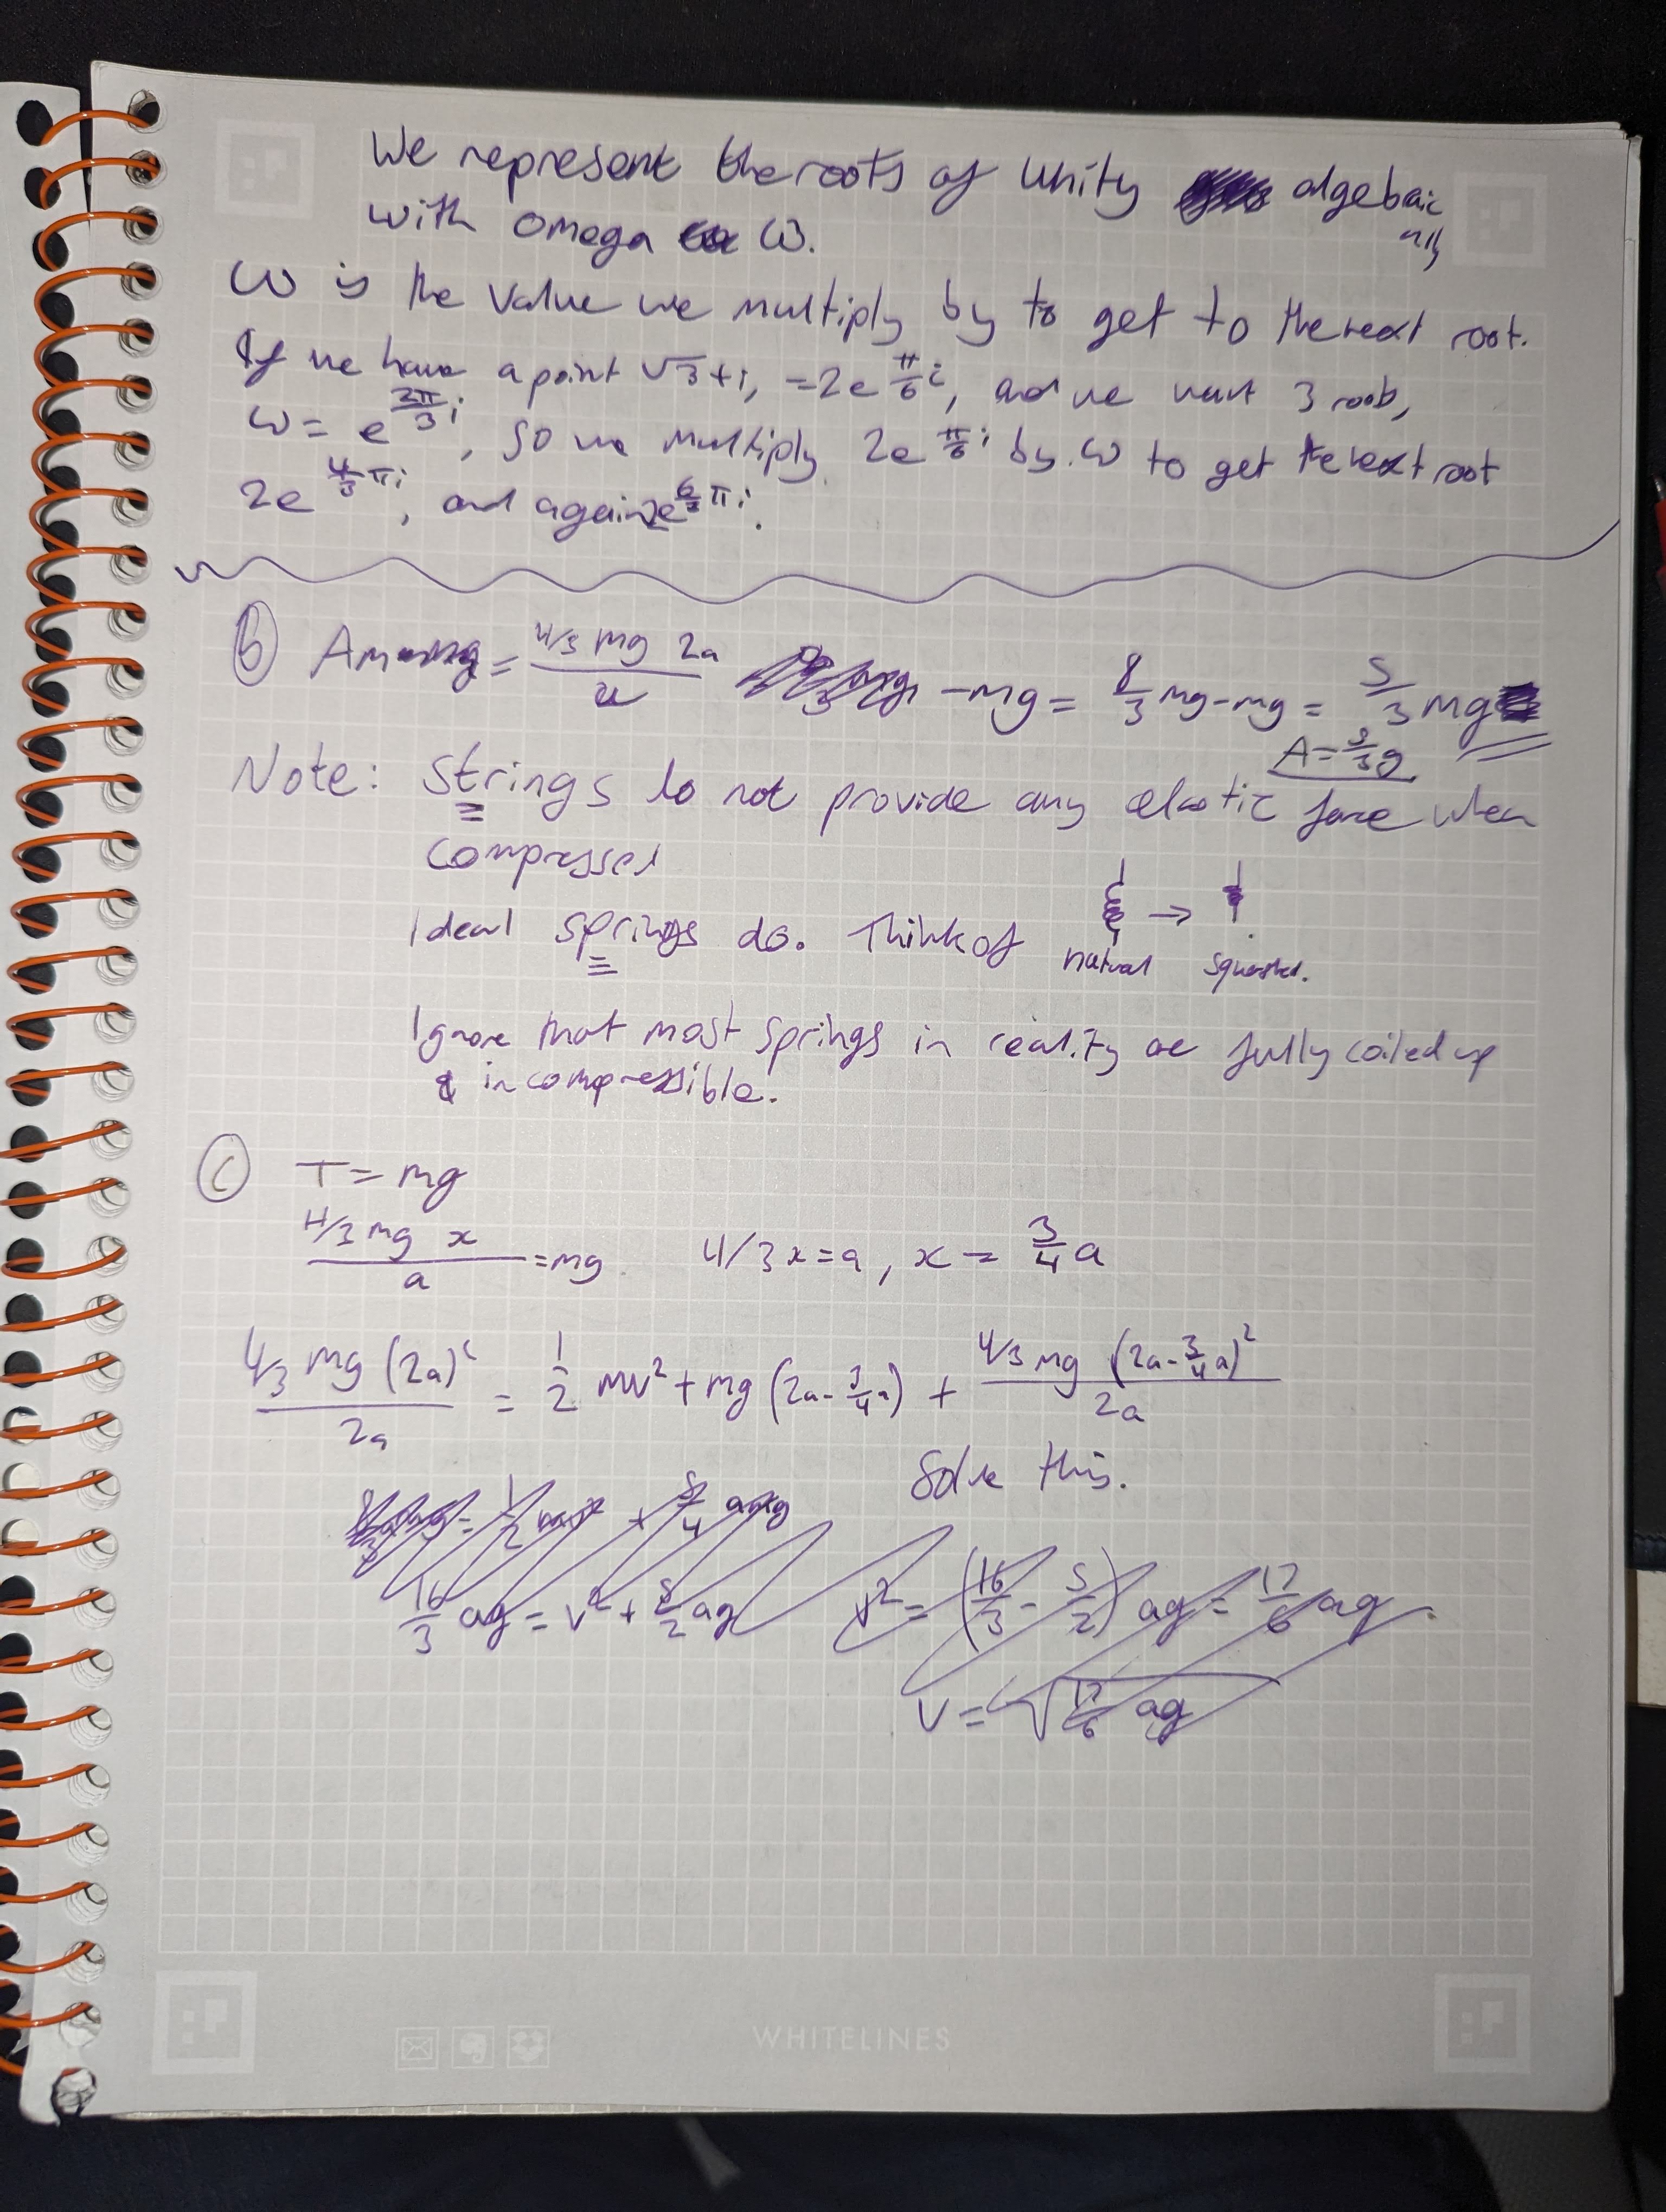 We represent the roots of unity algebraic
ally
with omega ω.
ω is the value we multiply by to get to the next root.
If we have a point √3+i, =2e^(π/6 i), and we want 3 roots,
ω = e^(2π/3 i), so we multiply 2e^(π/6 i) by ω to get the next root
2e^(4/3 πi), and again 2e^(6/3 πi).
(b) = (4/3 mg 2a)/a - mg = 8/3 mg - mg = 5/3 mg
A = 5/3 g
Note: Strings do not provide any elastic force when
compressed
Ideal springs do. Think of natural → squashed.
Ignore that most springs in reality are fully coiled up
& incompressible.
(c) T = mg
(4/3 mg x)/a = mg 4/3x = a, x = 3/4 a
(4/3 mg (2a)²)/2a = 1/2 mv² + mg (2a - 3/4 a) + (4/3 mg (2a - 3/4 a)²)/2a
Solve this.
16/3 ag = v² + 5/2 ag v² = (16/3 - 5/2) ag = 17/6 ag
v = √(17/6 ag)
WHITELINES